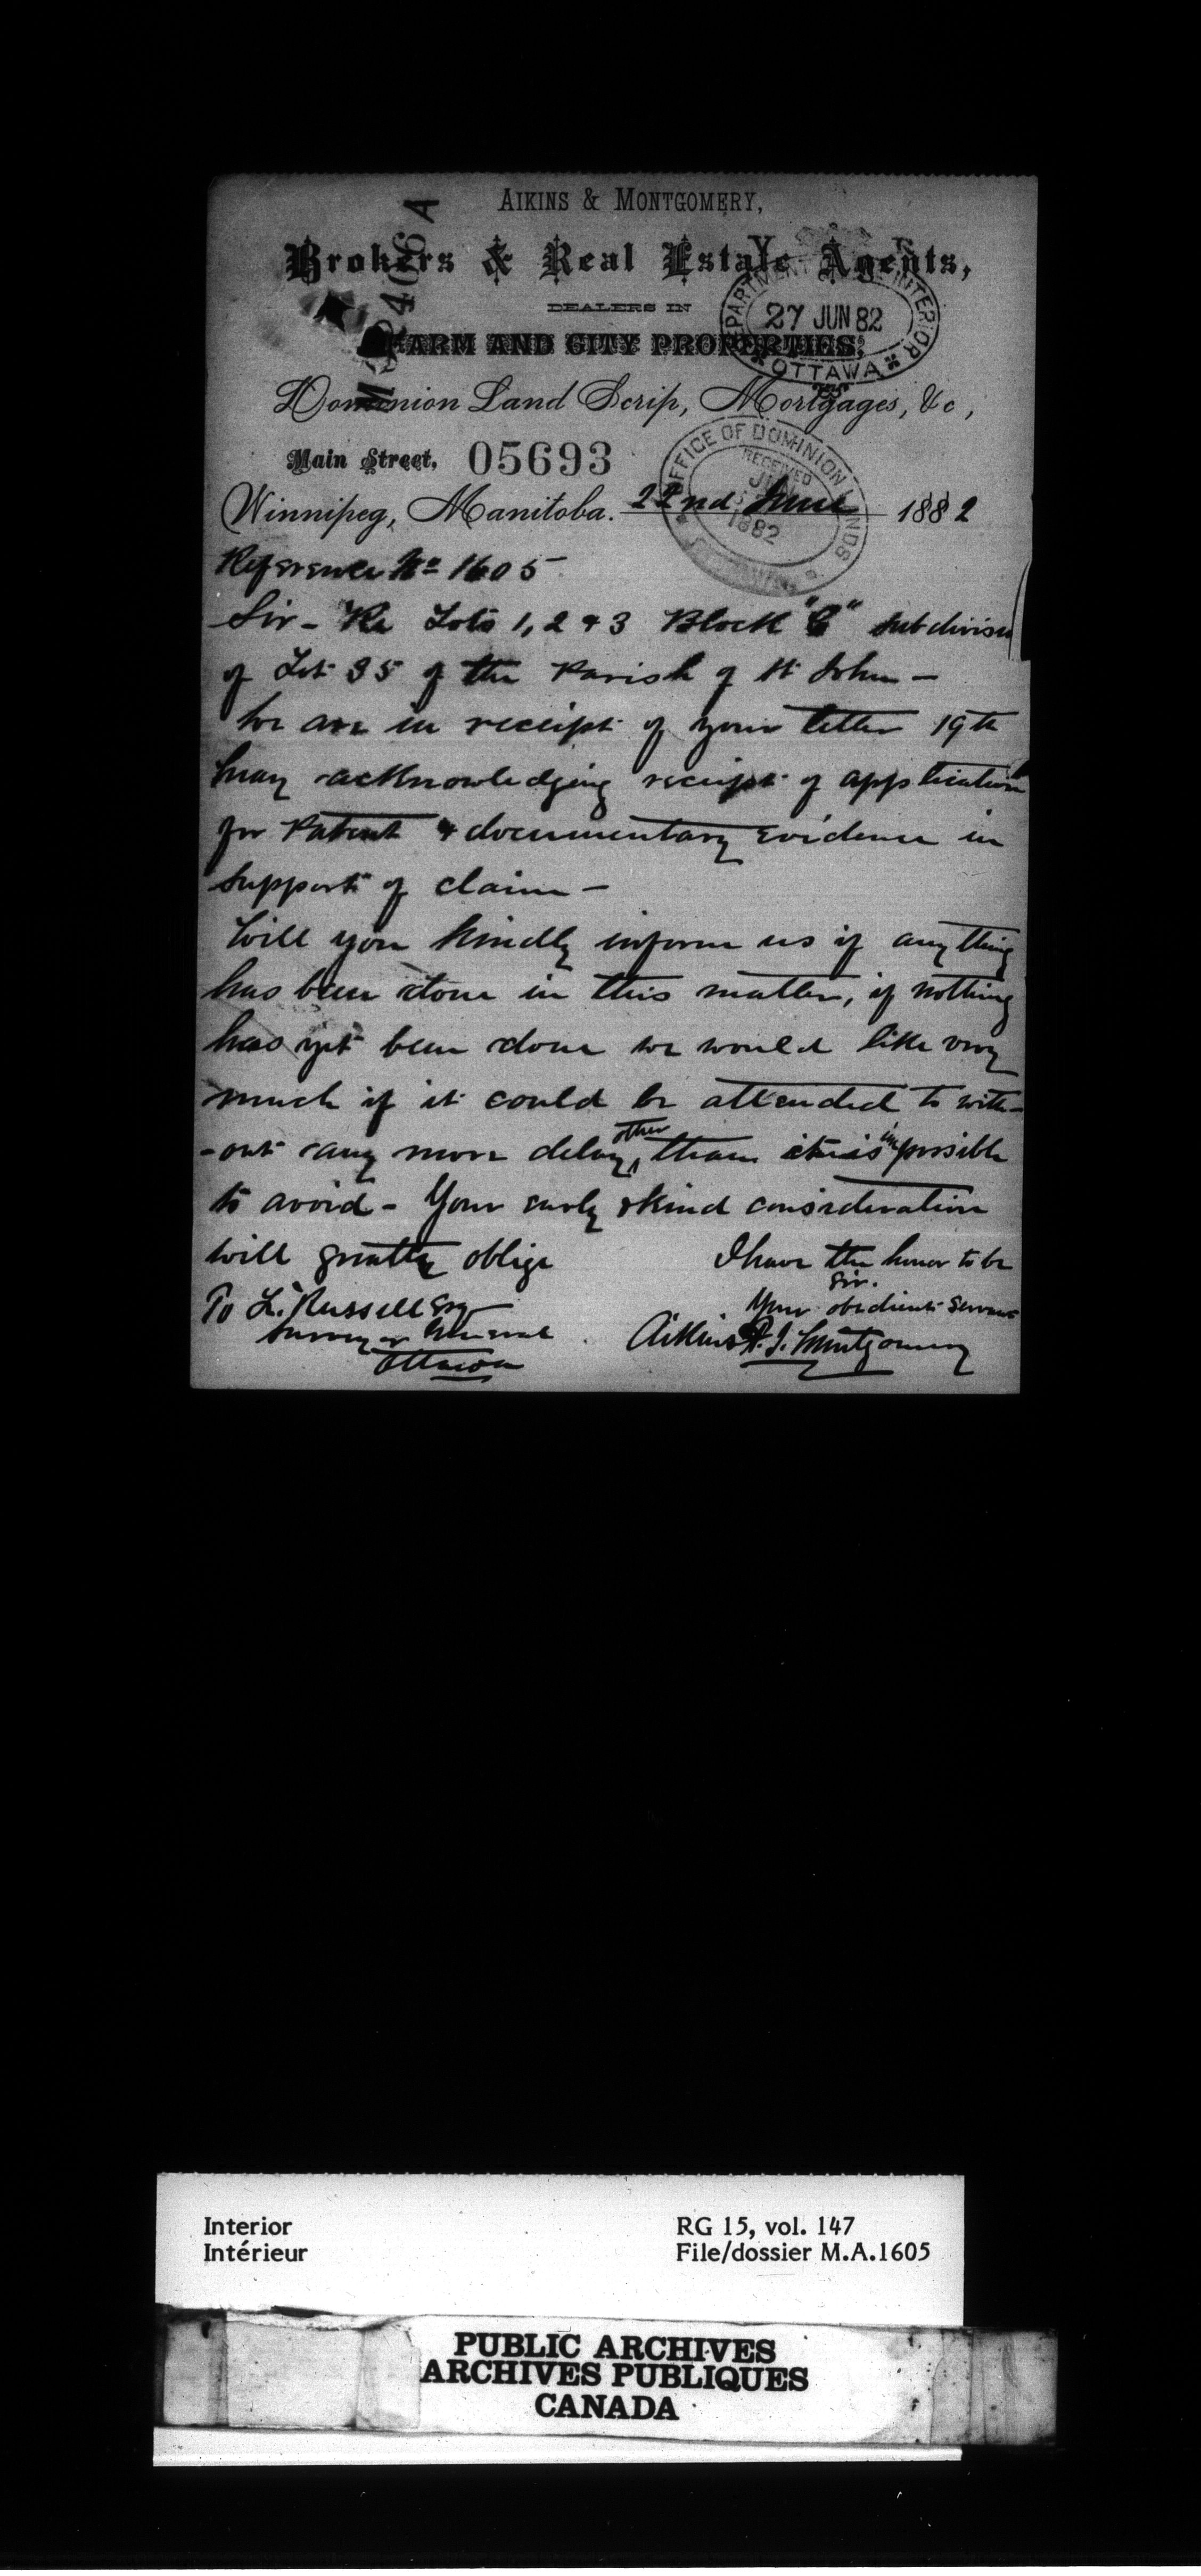 AIKINS & MONTGOMERY,
Brokers & Real Estate Agents,
DEALERS IN
FARM AND CITY PROPERTIES,
DEPARTMENT INTERIOR
27 JUN 82
OTTAWA
Dominion Land Scrip, Mortgages, &c,
Main Street, 05693
OFFICE OF DOMINION LANDS
RECEIVED
1882
Winnipeg, Manitoba. 22nd June 1882
Reference No 1605
Sir - Re Lots 1, 2 & 3 Block "C" subdivision
of Lot 35 of the Parish of St John -
We are in receipt of your letter 19th
May acknowledging receipt of application
for Patent & documentary evidence in
support of claim -
Will you kindly inform us if anything
has been done in this matter, if nothing
has yet been done we would like very
much if it could be attended to with-
-out any more delay other than it is impossible
to avoid - Your early & kind consideration
will greatly oblige
I have the honor to be
Sir.
Your obedient Servant
To L. Russell Esq
Surveyor General
Ottawa
Aikins & Montgomery
Interior
Intérieur
RG 15, vol. 147
File/dossier M.A.1605
PUBLIC ARCHIVES
ARCHIVES PUBLIQUES
CANADA